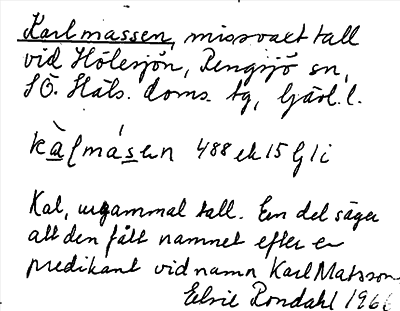 Karlmassen, missvaxt tall
vid Hölesjön, Rengsjö sn,
SÖ. Häls. doms. tg, Gävl. l.
kàlmásen 488 ek 15 G 1 i
Kal, urgammal tall. En del säger
att den fått namnet efter en
predikant vid namn Karl Matsson.
Elsie Rondahl 1966